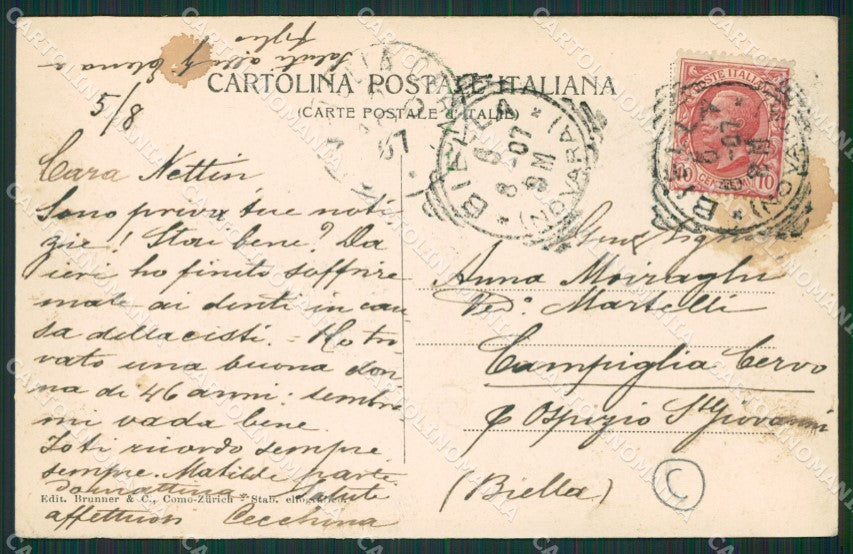 Saluti alla Sig. Elena e
figlio
CARTOLINA POSTALE ITALIANA
(CARTE POSTALE d'ITALIE)
5/8
BIELLA
(NOVARA)
6
8-07
9M
POSTE ITALIANE
10
CENTESIMI
10
BIELLA
(NOVARA)
6
8-07
9M
Cara Nettin
Sono priva tue noti
zie! Stai bene? Da
ieri ho finito soffrire
male ai denti in cau
sa della cisti. - Ho tro
vato una buona don
na di 46 anni: sembra
mi vada bene
Io ti ricordo sempre
sempre. Matilde parte
domattina - Saluti
affettuosi Cecchina
Edit. Brunner & C., Como-Zürich - Stab. eliografico
Gent. Signora
Anna Moiraghi
Ved.a Martelli
Campiglia Cervo
p Ospizio S. Giovanni
(Biella)
C
CARTOLINOMANIA